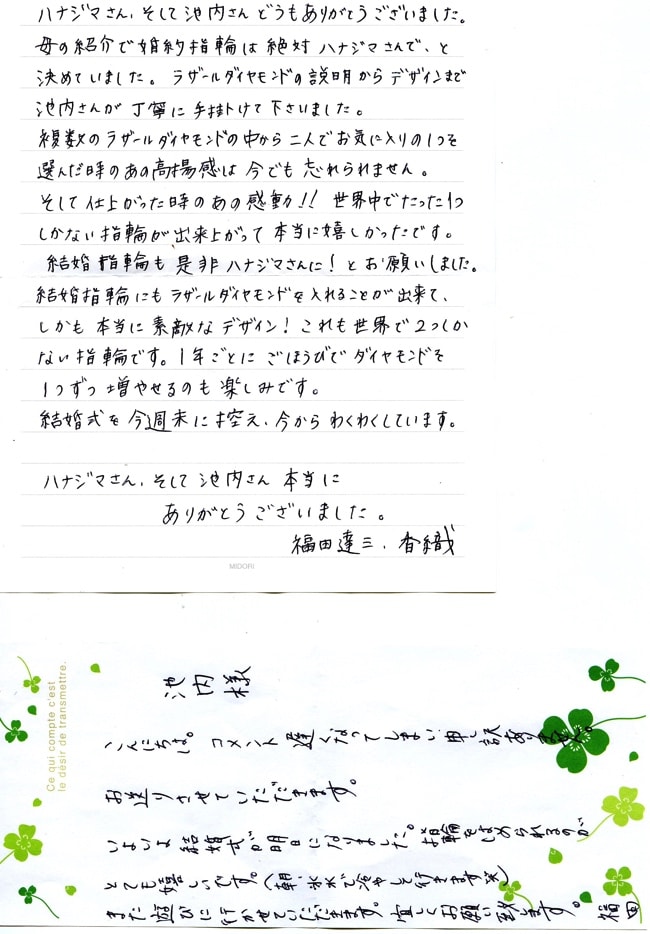 ハナジマさん、そして池内さんどうもありがとうございました。
母の紹介で婚約指輪は絶対ハナジマさんで、と
決めていました。ラザールダイヤモンドの説明からデザインまで
池内さんが丁寧に手掛けて下さいました。
複数のラザールダイヤモンドの中から二人でお気に入りの1つを
選んだ時のあの高揚感は今でも忘れられません。
そして仕上がった時のあの感動!!世界中でたった1つ
しかない指輪が出来上がって本当に嬉しかったです。
結婚指輪も是非ハナジマさんに!とお願いしました。
結婚指輪にもラザールダイヤモンドを入れることが出来て、
しかも本当に素敵なデザイン!これも世界で2つしか
ない指輪です。1年ごとにごほうびでダイヤモンドを
1つずつ増やせるのも楽しみです。
結婚式を今週末に控え、今からわくわくしています。
ハナジマさん、そして池内さん本当に
ありがとうございました。
福田達三、香織
MIDORI
Ce qui compte c'est
le désir de transmettre.
池内様
こんにちは。コメント遅くなってしまい申し訳ありません。
お送りさせていただきます。
いよいよ結婚式が明日になりました。指輪をはめられるのが
とても嬉しいです。(朝、氷水で冷やして行きます笑)
また遊びに行かせていただきます。宜しくお願い致します。福田